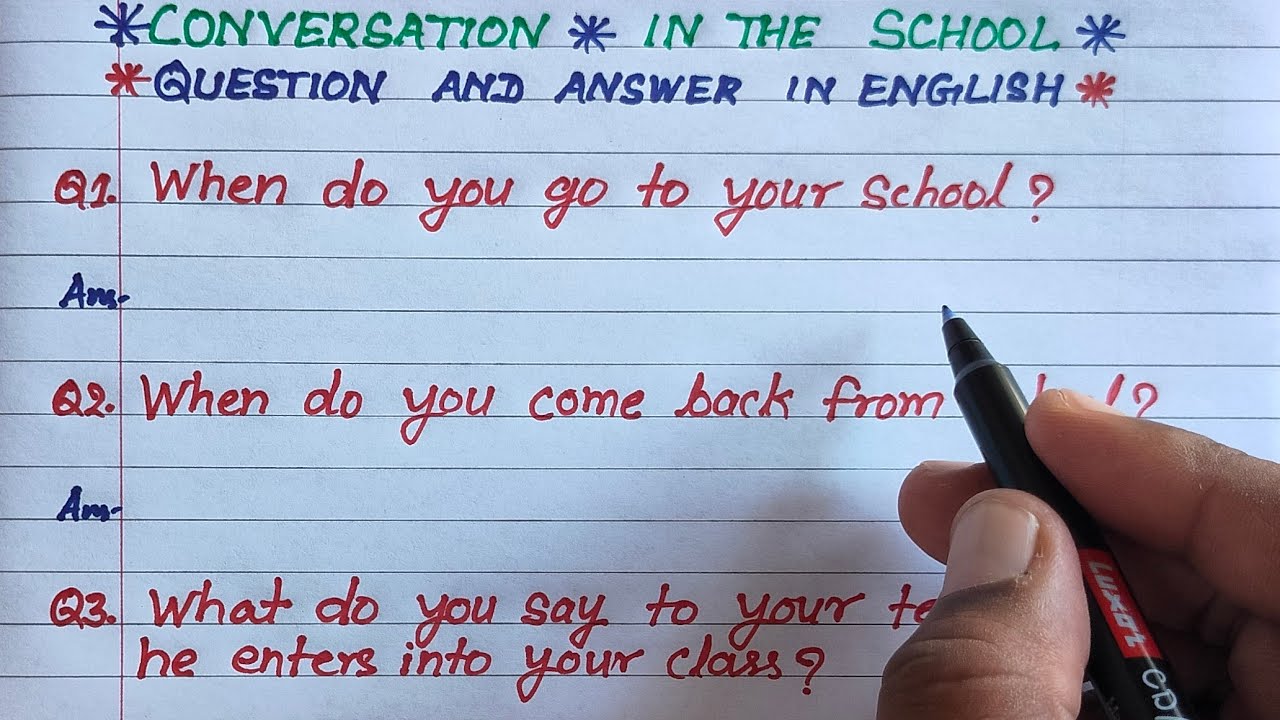 *CONVERSATION * IN THE SCHOOL *
*QUESTION AND ANSWER IN ENGLISH *
Q1. When do you go to your school?
Ans-
Q2. When do you come back from ?
Ans-
Q3. What do you say to your
he enters into your class?
LUXOR